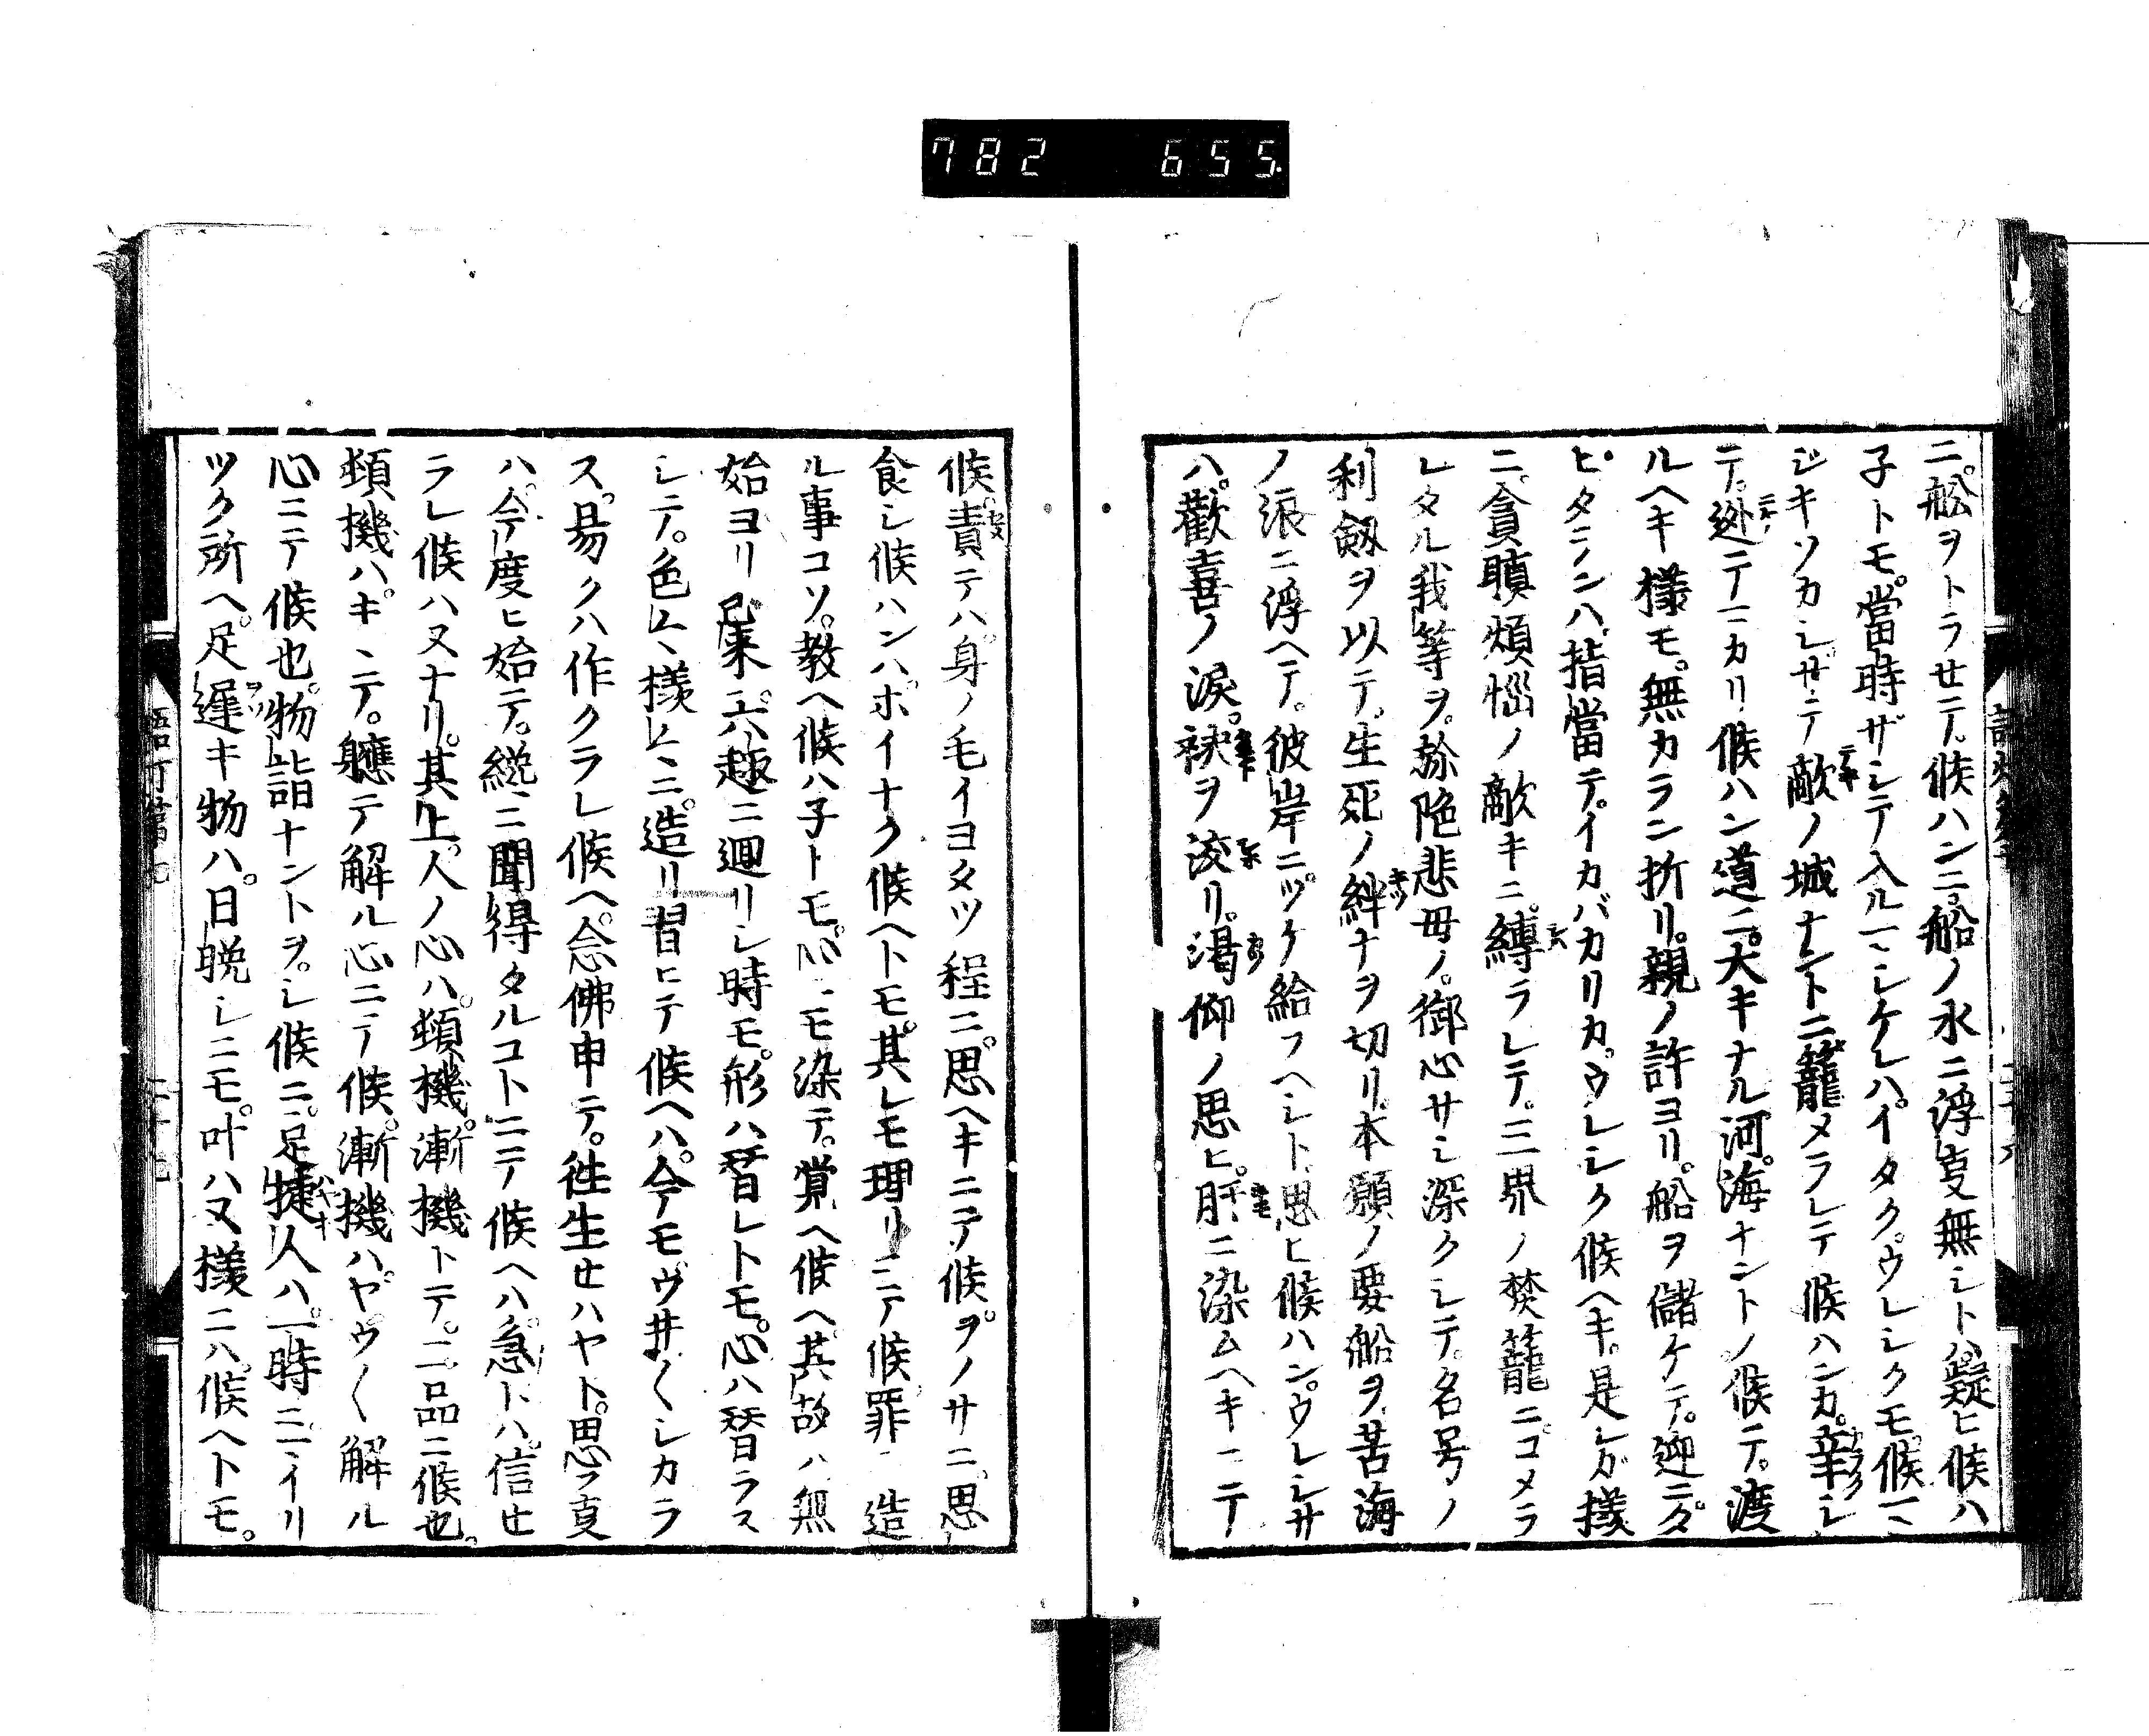 782 655
ニ。舩ヲトラせテ。候ハンニ。船ノ水ニ浮ヿ無シトハ。疑ヒ候ハ
子トモ。當時ザシテ入ルヿシケレハ。イタク。ウレシクモ。候ハ
ジキソカシ。サテ敵ノ城ナントニ籠メラレテ候ハンカ。辛シ
テ。逊テマカリ候ハン道ニ。大キナル河。海ナントノ候テ。渡
ルヘキ様モ。無カラン折リ。親ノ許ヨリ。船ヲ儲ケテ。迎ニタ
ヒタランハ。指當テ。イカバカリカ。ウレシク候ヘキ。是レガ様
ニ。貪瞋煩悩ノ敵キニ。縛ラレテ。三界ノ樊籠ニコメラ
レタル。我等ヲ。弥陀悲母ノ。御心サシ深クシテ。名号ノ
利劔ヲ以テ。生死ノ絆ナヲ切リ。本願ノ要船ヲ。苦海
ノ浪ニ浮ヘテ。彼岸ニツケ給フヘシト。思ヒ候ハン。ウレシサ
ハ。歡喜ノ涙。袂ヲ絞リ。渇仰ノ思ヒ。肝ニ染ムヘキニテ
候。責テハ。身ノ毛イヨタツ程ニ。思ヘキニテ候ヲ。ノサニ。思
食シ候ハンハ。ホイナク候ヘトモ。其レモ理リニテ候。罪造
ル事コソ。教ヘ候ハ子トモ。心ニモ染テ。覚ヘ候ヘ。其故ハ無
始ヨリ以来。六趣ニ廻リシ時モ。形ハ替レトモ。心ハ替ラス
シテ。色々樣々ニ。造リ習ヒテ候ヘハ。今モウ井〱シカラ
ス。易クハ作クラレ候ヘ。念佛申テ。往生せハヤト。思フヿ
ハ。今度ヒ始テ。纔ニ聞得タルコトニテ候ヘハ。急トハ。信せ
ラレ候ハヌナリ。其上。人ノ心ハ。頓機。漸機トテ。二品ニ候也。
頓機ハ。キヽテ。軈テ解ル心ニテ候。漸機ハ。ヤウ〱解ル
心ニテ候也。物詣ナントヲ。シ候ニ。足捷人ハ。一時ニイリ
ツク所ヘ。足遲キ物ハ。日晩シニモ。叶ハヌ様ニハ。候ヘトモ。